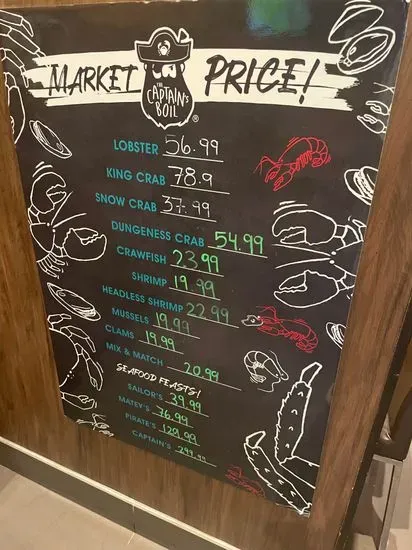 MARKET PRICE!
THE
CAPTAIN'S
BOIL
®
LOBSTER 56.99
KING CRAB 78.9
SNOW CRAB 37.99
DUNGENESS CRAB 54.99
CRAWFISH 23.99
SHRIMP 19.99
HEADLESS SHRIMP 22.99
MUSSELS 19.99
CLAMS 19.99
MIX & MATCH 20.99
SEAFOOD FEASTS!
SAILOR'S 39.99
MATEY'S 76.99
PIRATE'S 129.99
CAPTAIN'S 299.99